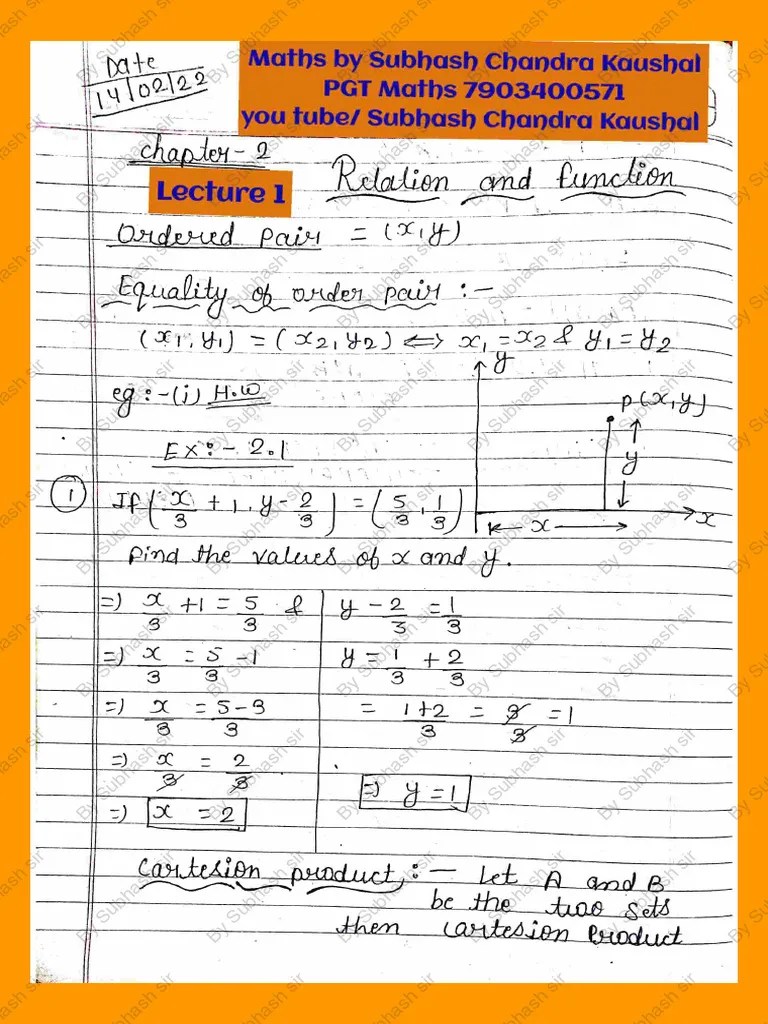 Date
14/02/22
Maths by Subhash Chandra Kaushal
PGT Maths 7903400571
you tube/ Subhash Chandra Kaushal
Chapter-2
Lecture 1
Relation and function
Ordered pair = (x,y)
Equality of order pair :-
(x₁, y₁) = (x₂, y₂) ⇔ x₁ = x₂ & y₁ = y₂
eg :- (i) H.W
y
P(x,y)
y
x
x
Ex :- 2.1
① If (x/3 + 1, y - 2/3) = (5/3, 1/3)
Find the values of x and y.
=) x/3 + 1 = 5/3 &
=) x/3 = 5/3 - 1
=) x/3 = 5-3/3
=) x/3 = 2/3
=) x = 2
y - 2/3 = 1/3
y = 1/3 + 2/3
= 1+2/3 = 3/3 = 1
=) y = 1
Cartesion product :- Let A and B
be the two sets
then cartesion product
By Subhash sir